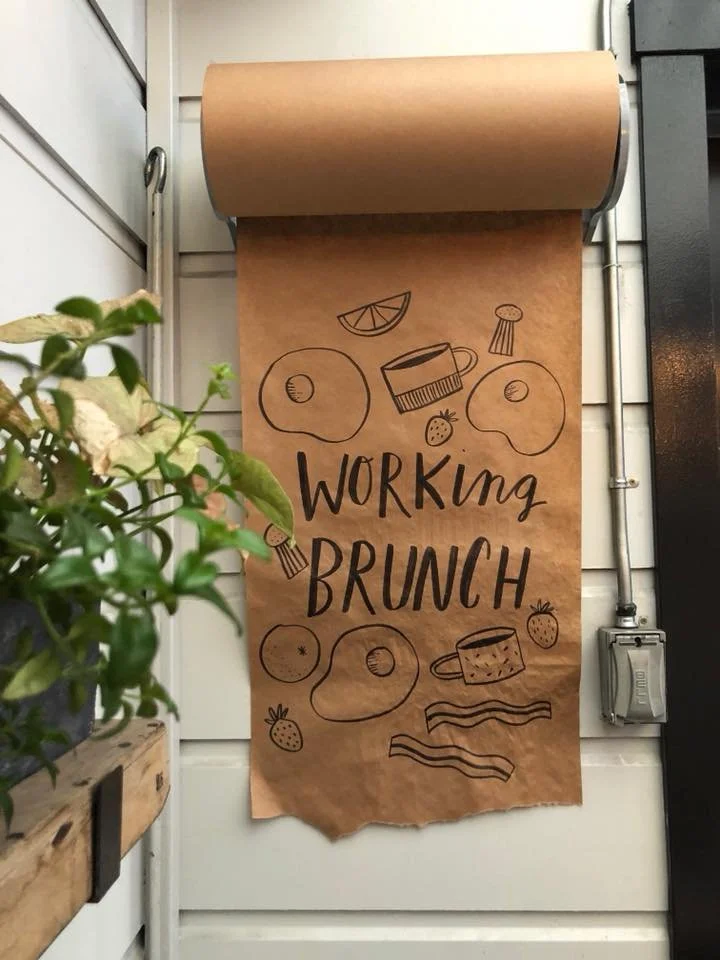 WORKing
BRUNCH